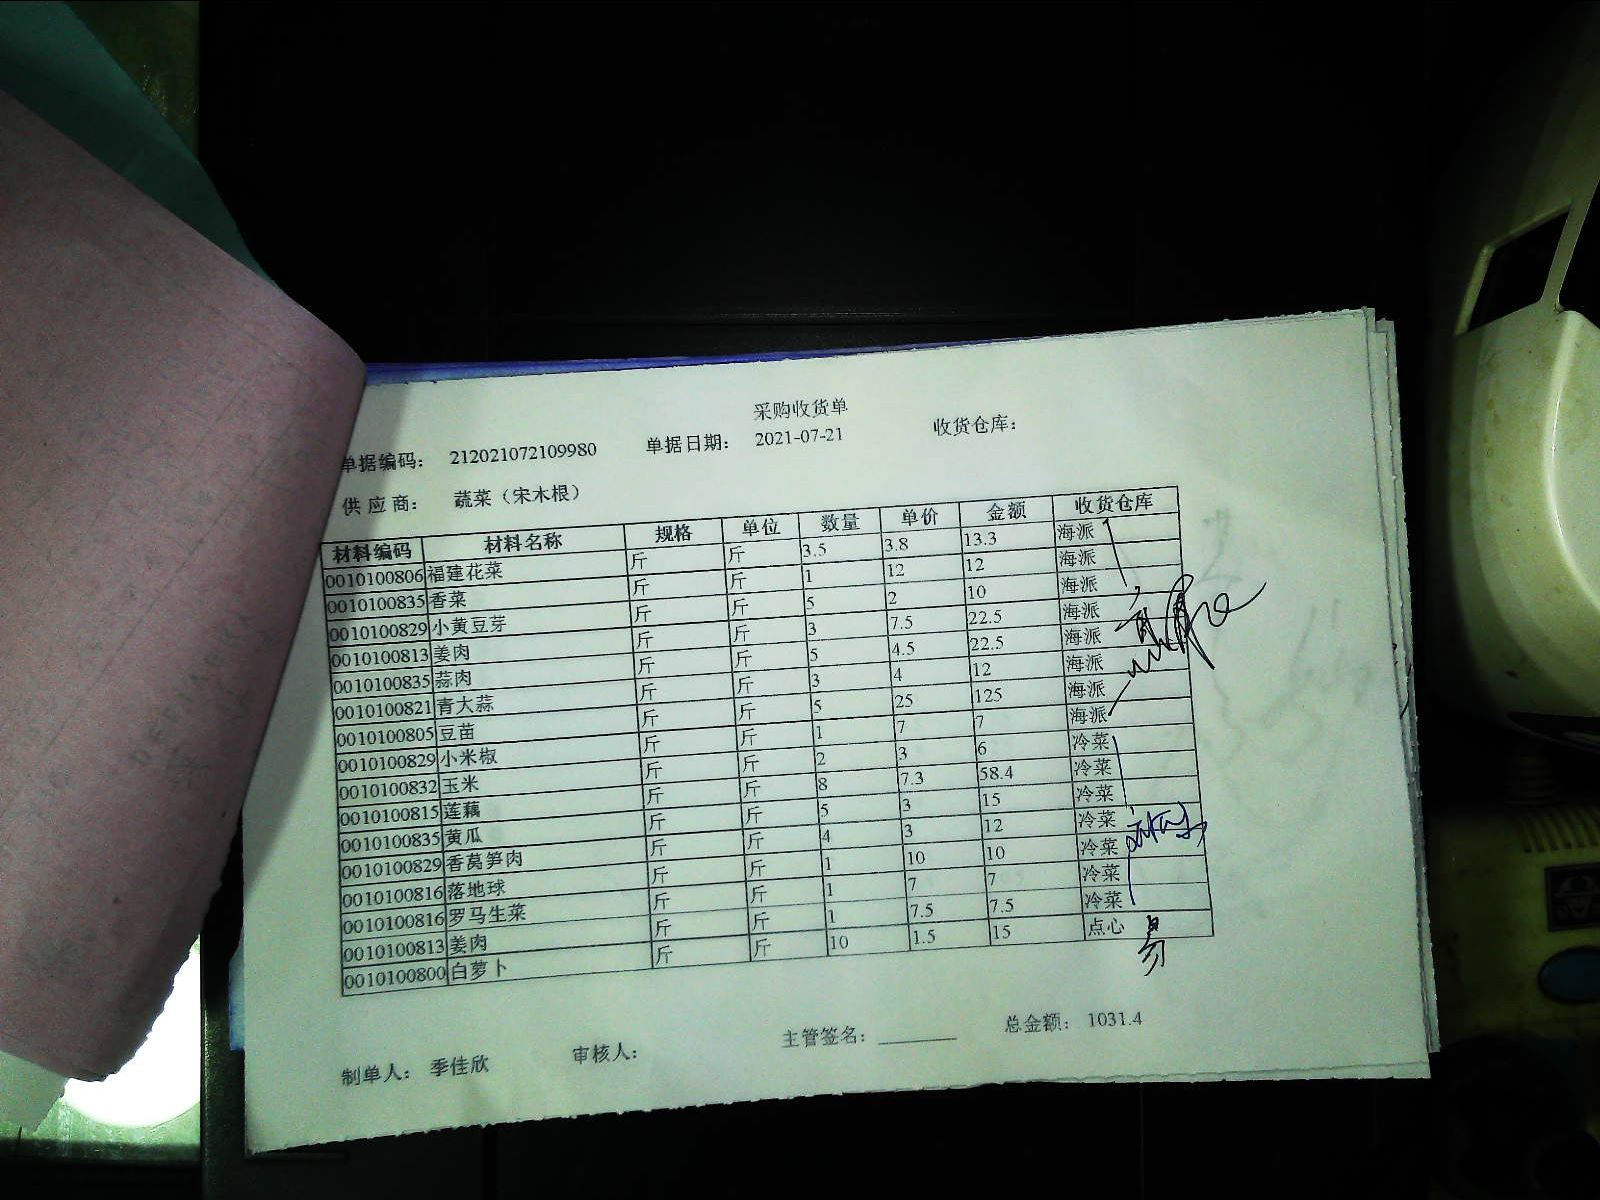 采购收货单
单据编码： 212021072109980 单据日期： 2021-07-21 收货仓库：
供 应 商： 蔬菜（宋木根）
材料编码 材料名称 规格 单位 数量 单价 金额 收货仓库
0010100806 福建花菜 斤 斤 3.5 3.8 13.3 海派
0010100835 香菜 斤 斤 1 12 12 海派
0010100829 小黄豆芽 斤 斤 5 2 10 海派
0010100813 姜肉 斤 斤 3 7.5 22.5 海派
0010100835 蒜肉 斤 斤 5 4.5 22.5 海派
0010100821 青大蒜 斤 斤 3 4 12 海派
0010100805 豆苗 斤 斤 5 25 125 海派
0010100829 小米椒 斤 斤 1 7 7 海派
0010100832 玉米 斤 斤 2 3 6 冷菜
0010100815 莲藕 斤 斤 8 7.3 58.4 冷菜
0010100835 黄瓜 斤 斤 5 3 15 冷菜
0010100829 香莴笋肉 斤 斤 4 3 12 冷菜
0010100816 落地球 斤 斤 1 10 10 冷菜
0010100816 罗马生菜 斤 斤 1 7 7 冷菜
0010100813 姜肉 斤 斤 1 7.5 7.5 冷菜
0010100800 白萝卜 斤 斤 10 1.5 15 点心
制单人： 季佳欣 审核人： 主管签名： 总金额： 1031.4